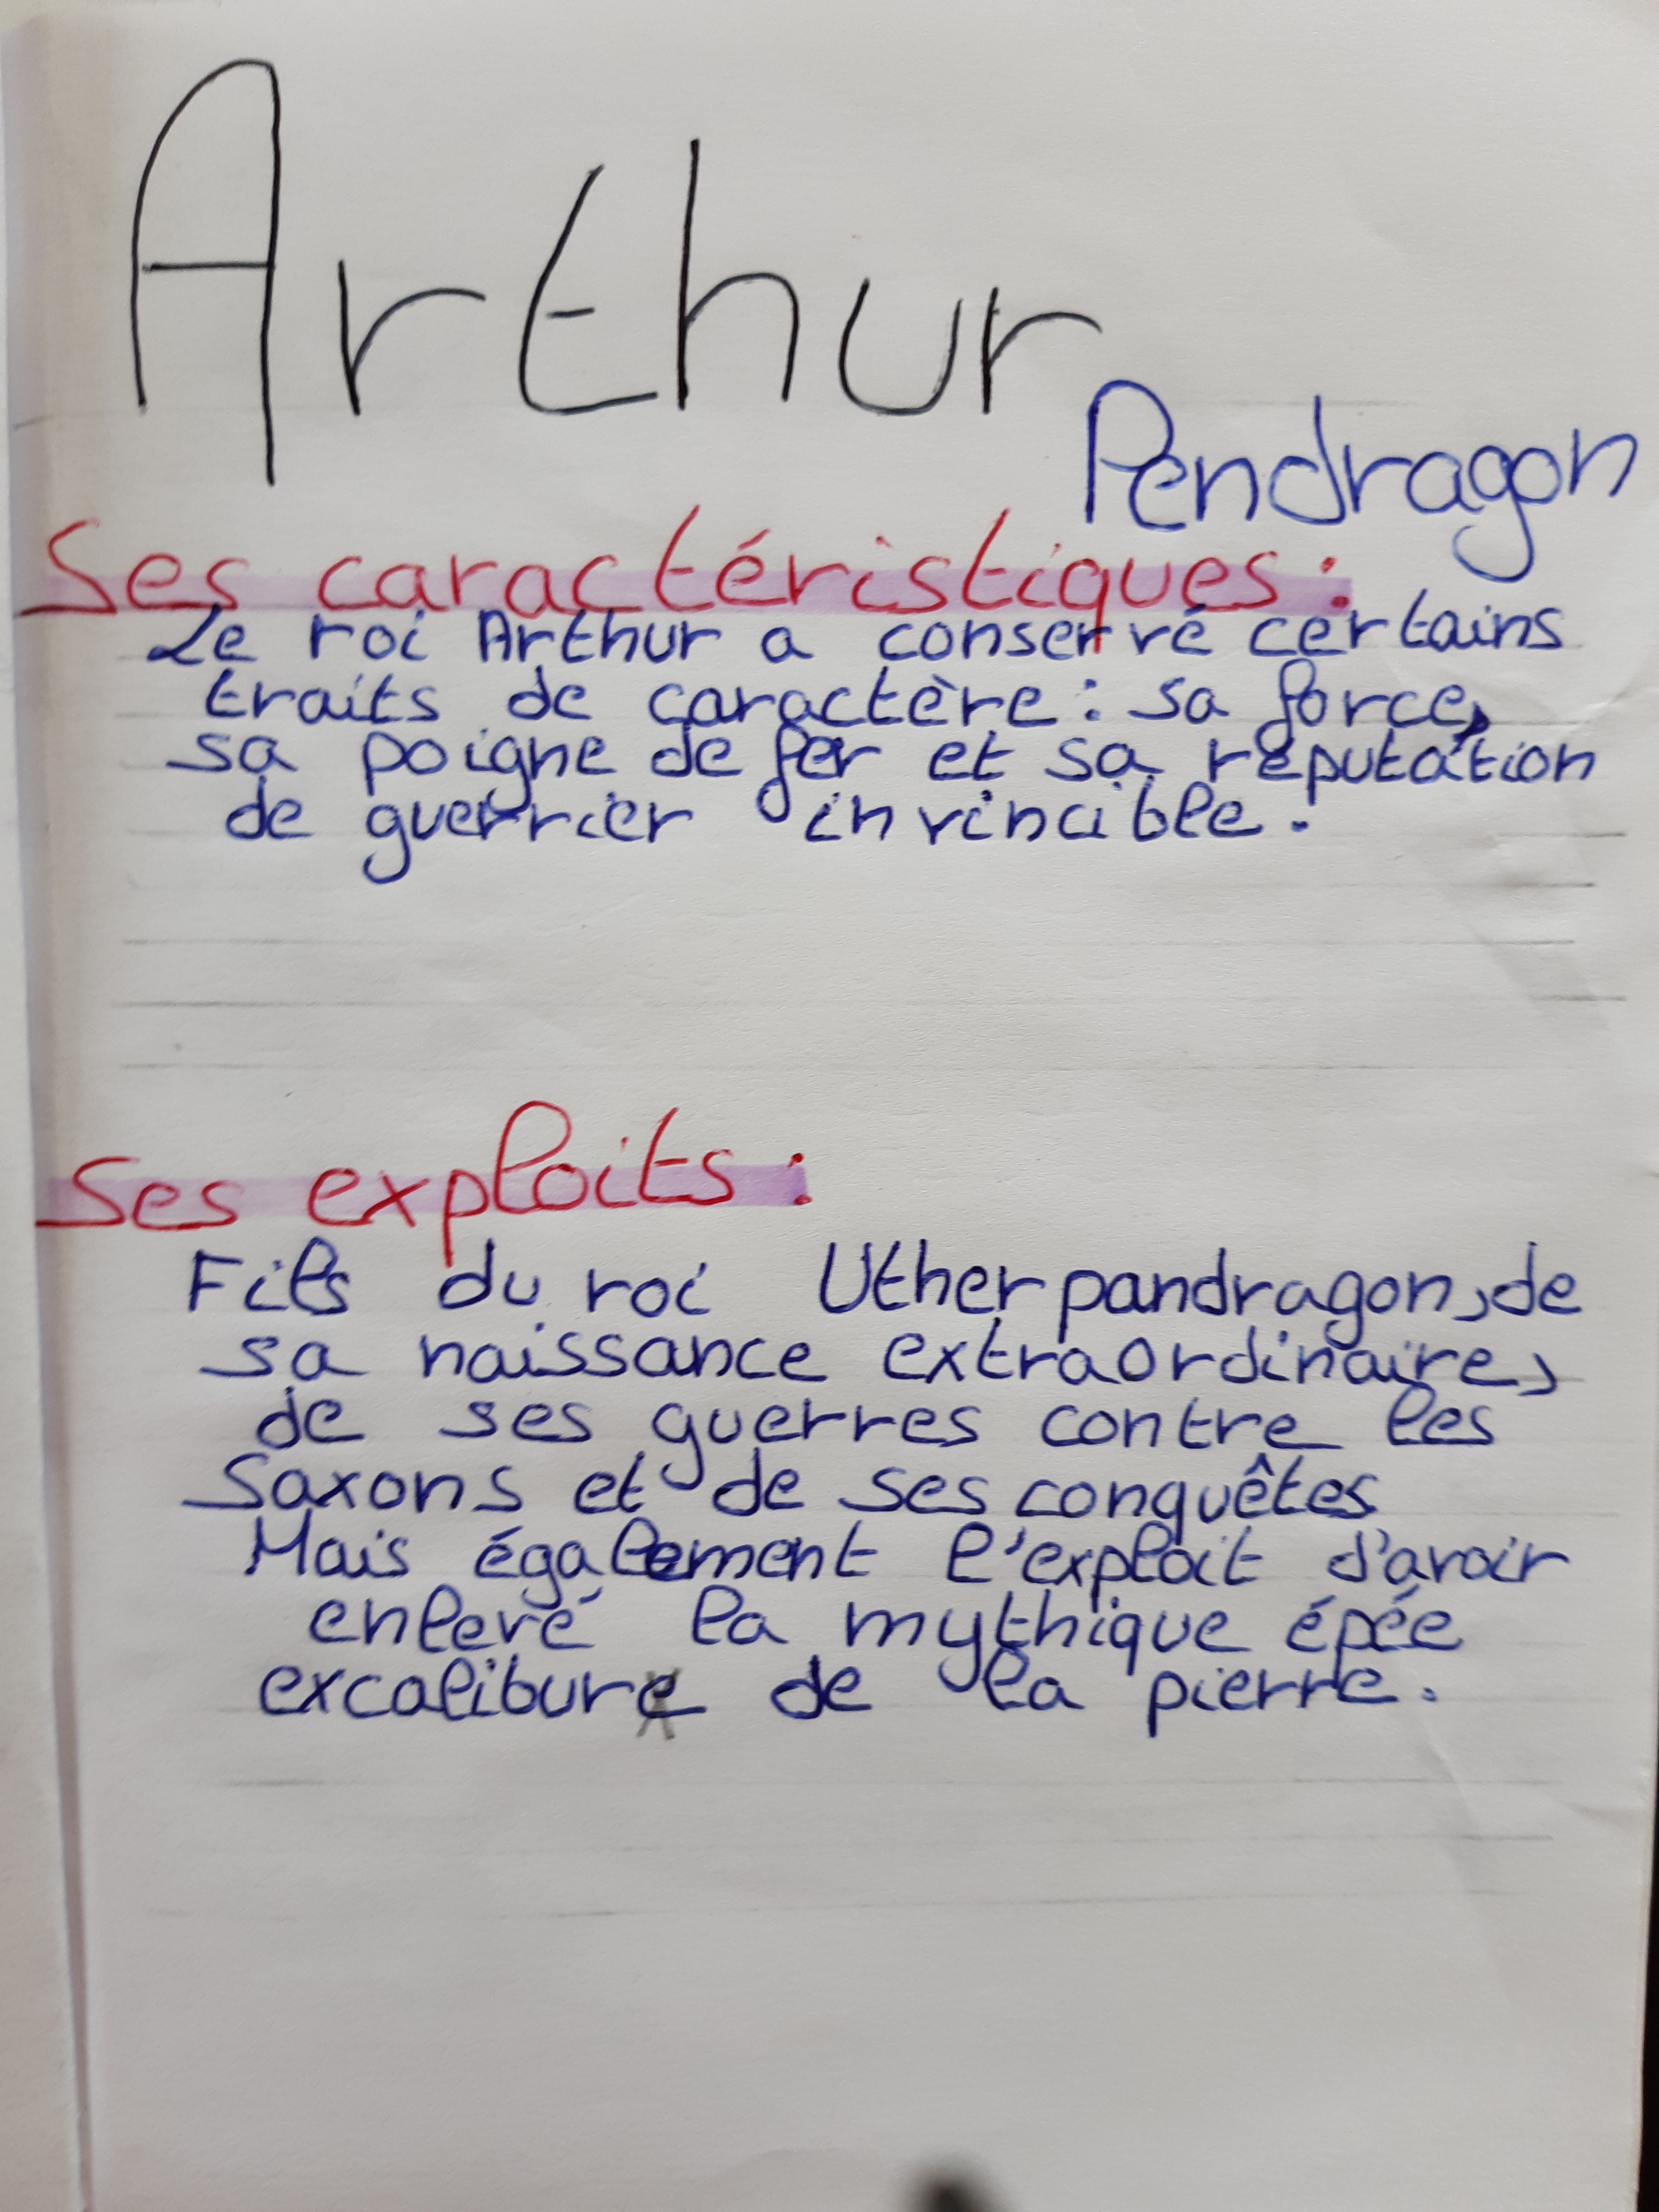 Arthur
Pendragon
Ses caractéristiques :
Le roi Arthur a conservé certains
traits de caractère : sa force,
sa poigne de fer et sa réputation
de guerrier invincible.
Ses exploits :
Fils du roi Uther pandragon, de
sa naissance extraordinaire,
de ses guerres contre les
Saxons et de ses conquêtes
Mais également l'exploit d'avoir
enlevé la mythique épée
excalibur de la pierre.